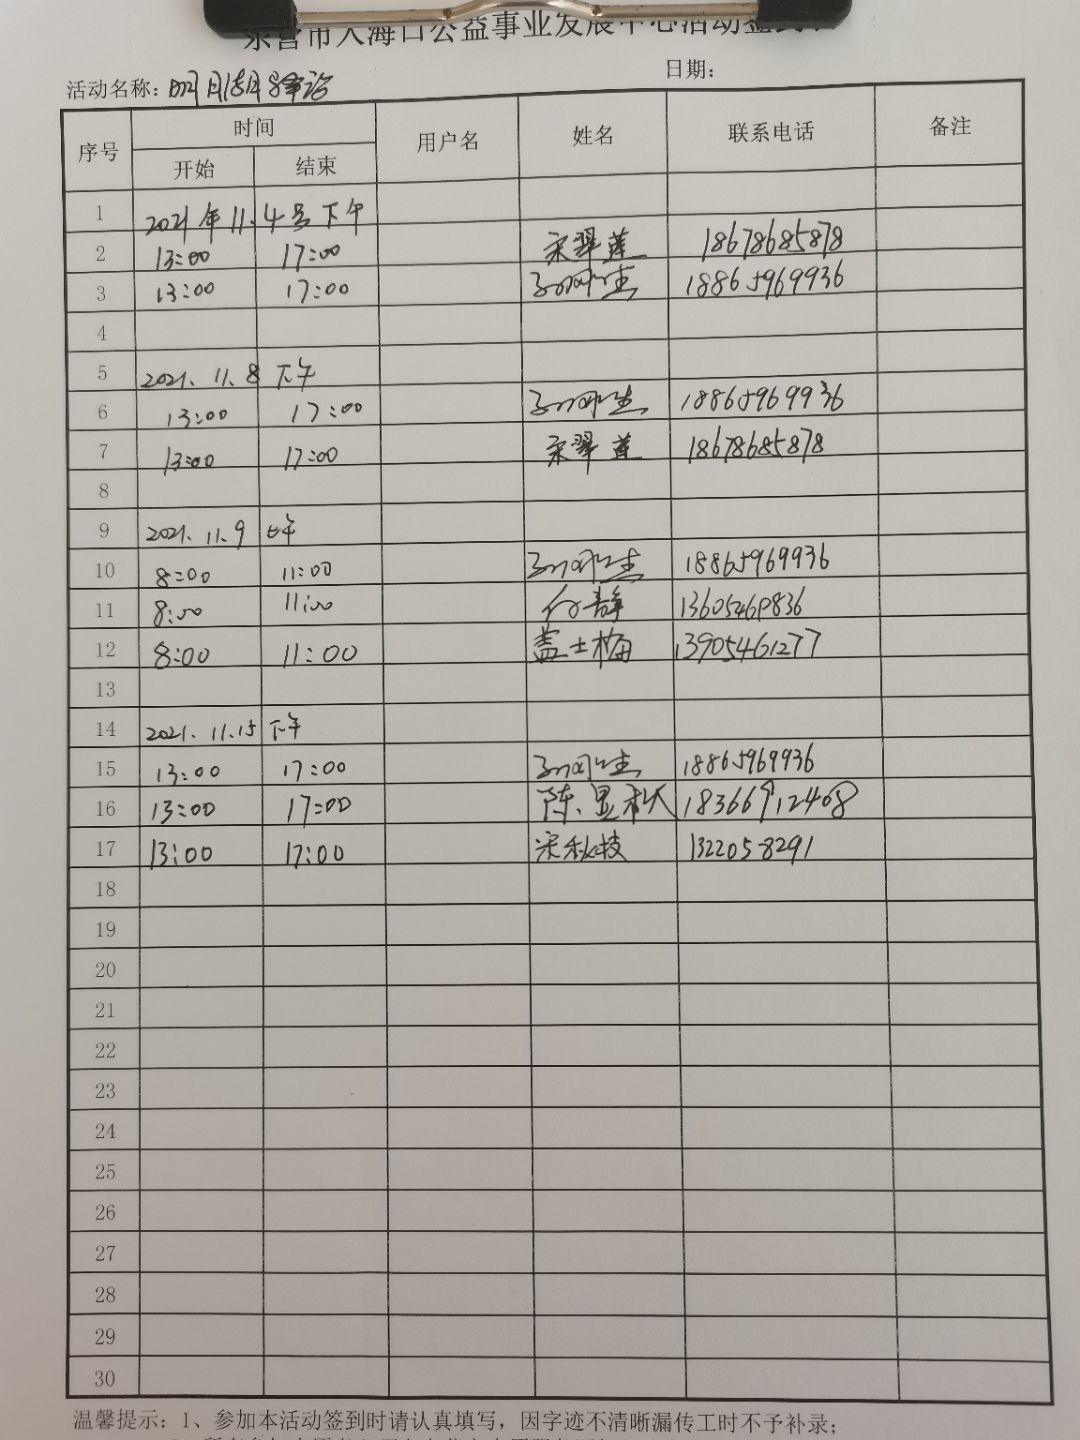 东营市入海口公益事业发展中心活动签到
活动名称: 日期:
序号 时间 用户名 姓名 联系电话 备注
开始 结束
1 2021年11.4号下午
2 13:00 17:00 宋翠莲 18678685878
3 13:00 17:00 18865969936
4
5 2021.11.8 下午
6 13:00 17:00 18865969936
7 13:00 17:00 宋翠莲 18678685878
8
9 2021.11.9 上午
10 8:00 11:00 18865969936
11 8:00 11:00 付静 13605469836
12 8:00 11:00 盖士梅 13905461277
13
14 2021.11.15 下午
15 13:00 17:00 18865969936
16 13:00 17:00 陈显秋 18366912408
17 13:00 17:00 宋秋枝 1322058291
18
19
20
21
22
23
24
25
26
27
28
29
30
温馨提示:1、参加本活动签到时请认真填写,因字迹不清晰漏传工时不予补录;